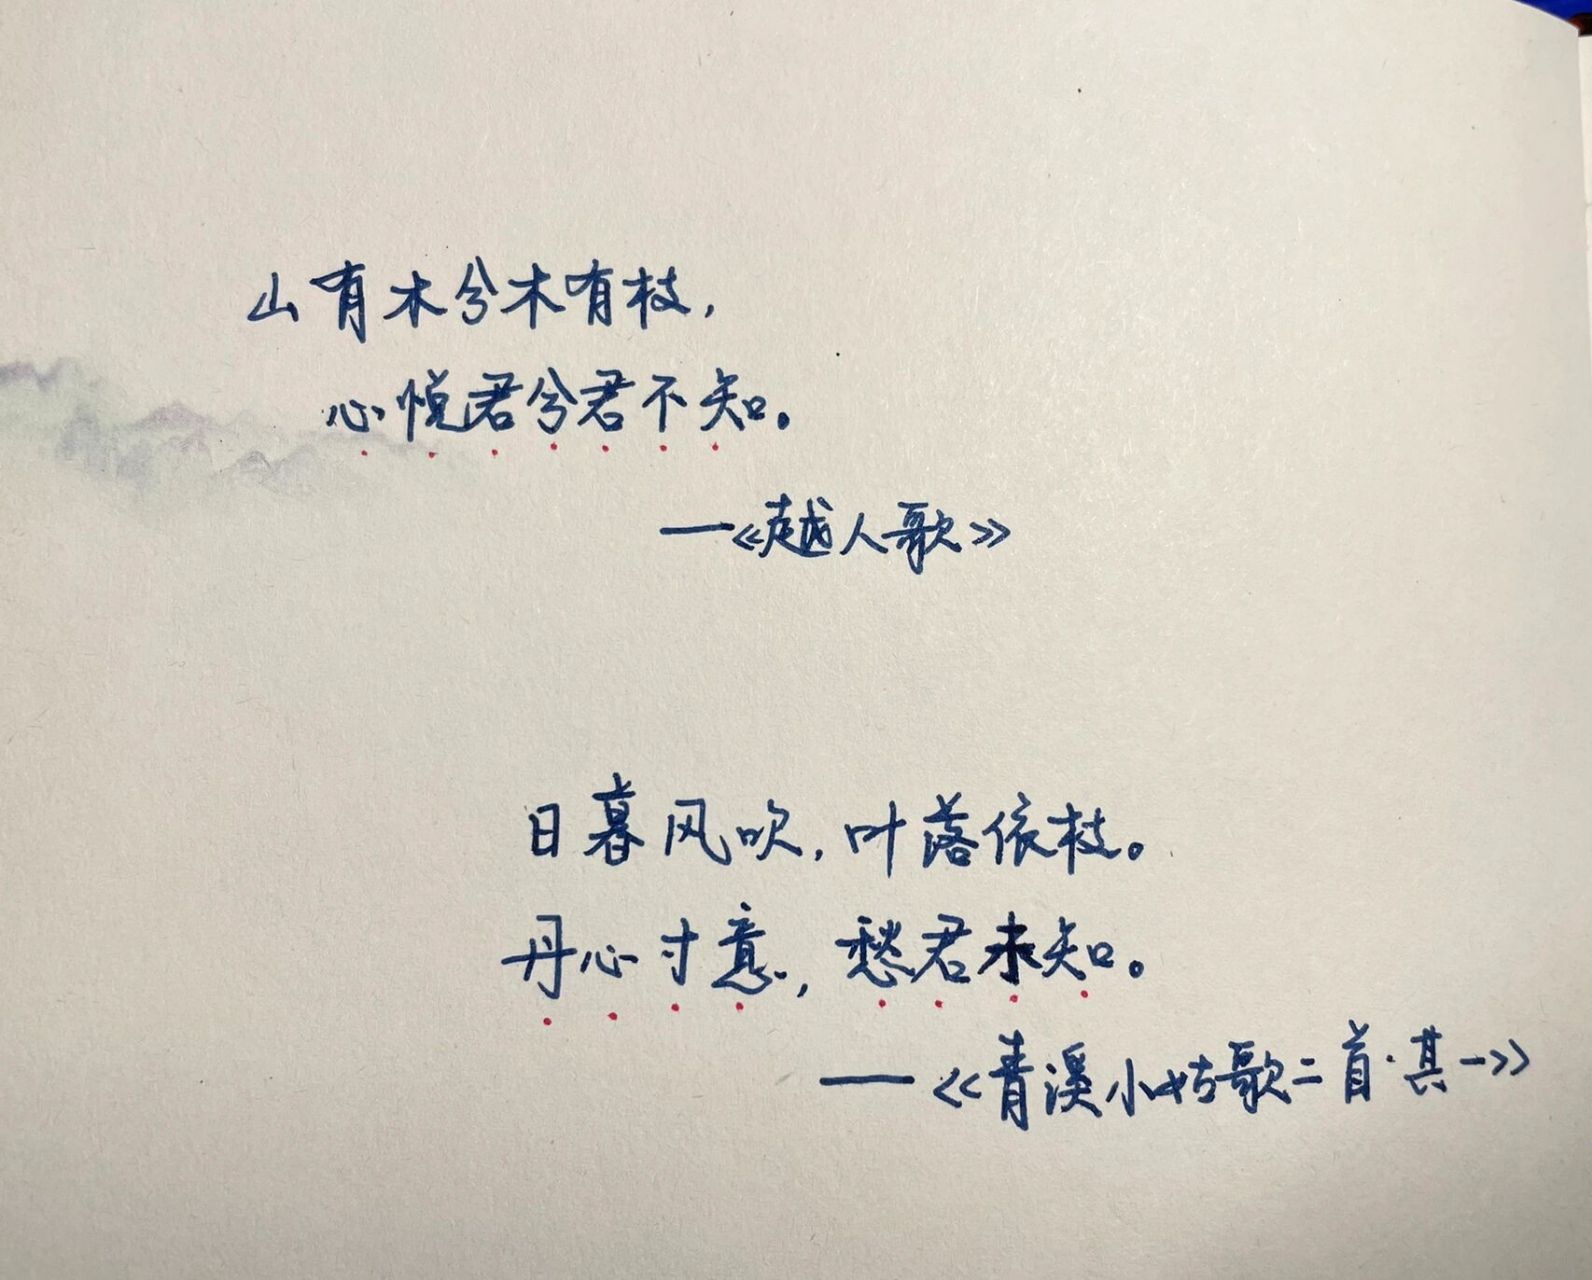 山有木兮木有枝，
心悦君兮君不知。
——《越人歌》
日暮风吹，叶落依枝。
丹心寸意，愁君未知。
——《青溪小姑歌二首·其一》